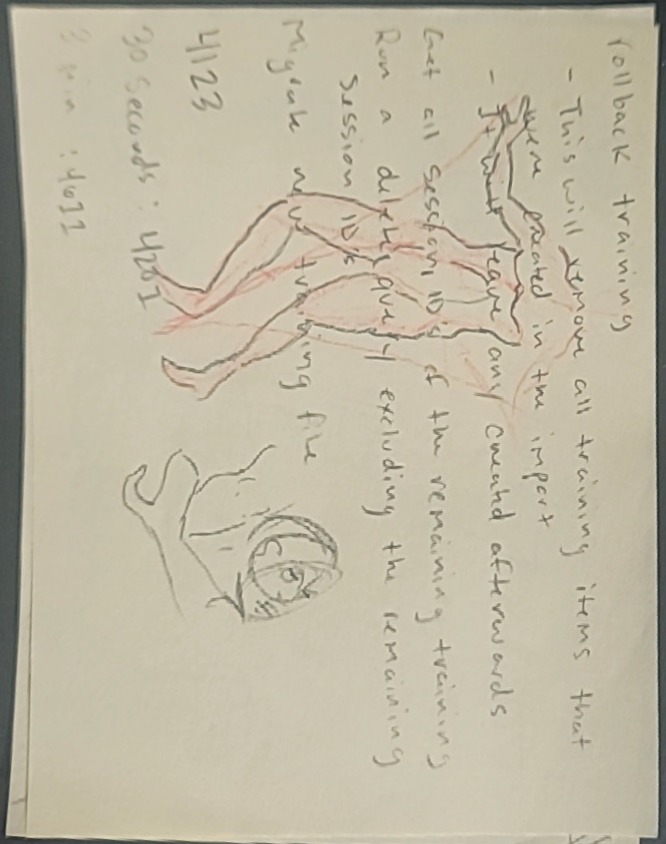 rollback training
- This will remove all training items that
were created in the import
- It will leave any created afterwards
Get all session ID's of the remaining training
Run a delete query excluding the remaining
session ID's
Migrate new training file
4123
30 seconds : 4201
2 min : 4611